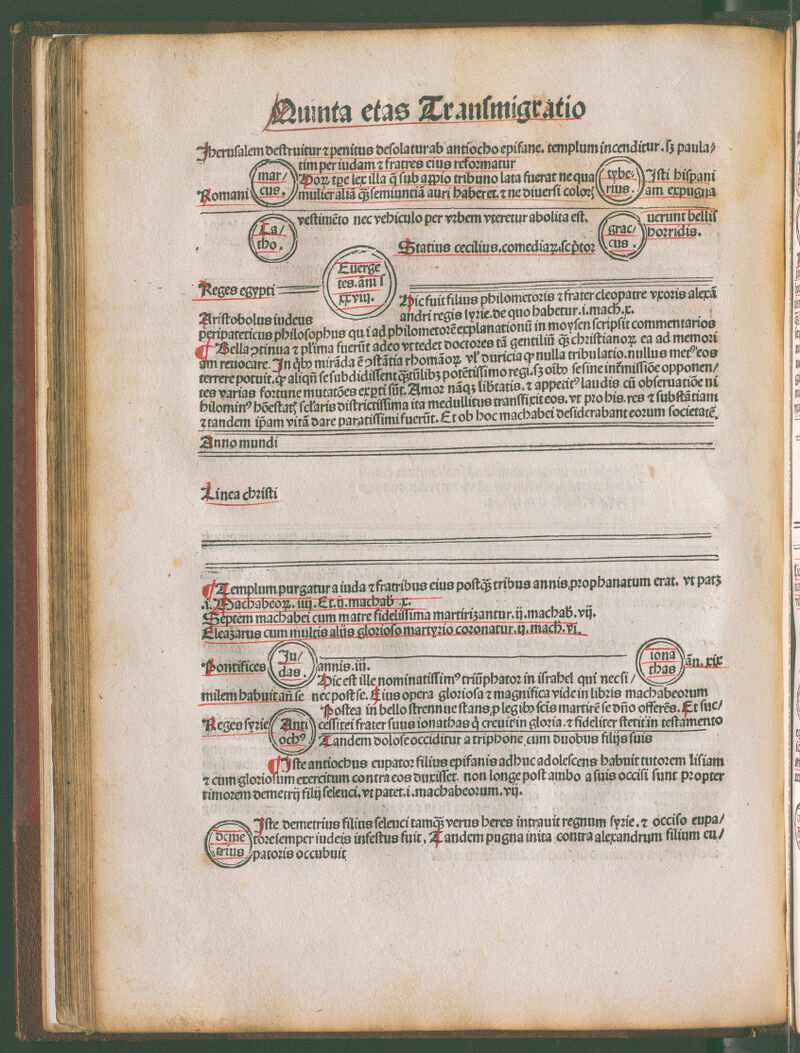 Quinta etas Tranſmigratio
Jheruſalem deſtruitur ⁊ penitus deſolatur ab antiocho epifane. templum incenditur. ſꝫ paula/
tim per iudam ⁊ fratres eius reformatur
mar/
cus.
tybe/
rius.
Hoꝝ tꝑe lex illa q̄ ſub appio tribuno lata fuerat ne qua
Iſti hiſpani
Romani
mulier aliā q̄ꝫ ſemiunciā auri haberet. ⁊ ne diuerſi coloꝝ
am expugna
veſtimēto nec vehiculo per vꝛbem vteretur abolita eſt.
uerunt bellis
Ca/
tho.
grac/
cus.
hoꝛridis.
Statius cecilius. comediaꝝ ſcp̄toꝛ
Euerge
tes. ani ſ
xxviij.
Reges egypti
Hic fuit filius philometoꝛis ⁊ frater cleopatre vxoꝛis alexā
andri regis ſyrie. de quo habetur .i. mach. x.
Ariſtobolus iudeus
peripateticus philoſophus qui ad philometoꝛē explanationū in moyſen ſcripſit commentarios
¶ Bella ꝯtinua ⁊ pl'ima fuerūt adeo vt tedet doctoꝛes tā gentiliū q̄ꝫ chꝛiſtianoꝝ ea ad memoꝛi
am reuocare. In qͥbꝰ mirāda ē ꝯſtātia rhomāoꝝ vl' duricia ꝙ nulla tribulatio. nullus metꝰ eos
terrere potuit. ꝙ aliqn̄ ſe ſubdidiſſent q̄ꝫtūlibꝫ potētiſſimo regi. ſꝫ oībꝰ ſe ſine intmiſſiōe opponen/
tes varias foꝛtune mutatōes expti ſūt. Amoꝛ nāqꝫ lib̄tatis. ⁊ appetitꝰ laudis cū obſeruatiōe ni
hilominꝰ hōeſtatꝭ ſcl'aris diſtrictiſſima ita medullitus tranſfixit eos. vt pꝛo his. res ⁊ ſubſtātiam
⁊ tandem ip̄am vitā dare paratiſſimi fuerūt. Et ob hoc machabei deſiderabant eoꝛum ſocietatē.
Anno mundi
Linea chꝛiſti
¶ Templum purgatur a iuda ⁊ fratribus eius poſtq̄ꝫ tribus annis ꝓphanatum erat. vt patꝫ
.i. Machabeoꝝ. iiij. Et .ij. machab̄. x.
Septem machabei cum matre fideliſſima martirizantur. ij. machab̄. vij.
Eleazarus cum multis alijs glorioſo martyrio coꝛonatur. ij. mach̄. vi.
Ju/
das.
iona
thas
Pontifices
annis. iij.
ān. xix
Hic eſt ille nominatiſſimꝰ triūphatoꝛ in iſrahel qui nec ſi/
milem habuit añ ſe nec poſt ſe. Eius opera glorioſa ⁊ magnifica vide in libꝛis machabeoꝛum
Poſtea in bello ſtrennue ſtans ꝓ legibꝰ ſcīs martirē ſe dn̄o offerēs. Et ſuc/
Reges ſyrie
Anti
ochꝰ
ceſſit ei frater ſuus ionathas q̄ creuit in gloria. ⁊ fideliter ſtetit in teſtamento
Tandem doloſe occiditur a triphone cum duobus filijs ſuis
¶ Iſte antiochus eupatoꝛ filius epifanis adhuc adoleſcens habuit tutoꝛem liſiam
⁊ cum glorioſum exercitum contra eos duxiſſet. non longe poſt ambo a ſuis occiſi ſunt pꝛopter
timoꝛem demetrij filij ſeleuci. vt patet .i. machabeoꝛum. vij.
deme
trius
Iſte demetrius filius ſeleuci tamq̄ꝫ verus heres intrauit regnum ſyrie. ⁊ occiſo eupa/
toꝛe ſemper iudeis infeſtus fuit. Tandem pugna inita contra alexandrum filium eu/
patoꝛis occubuit